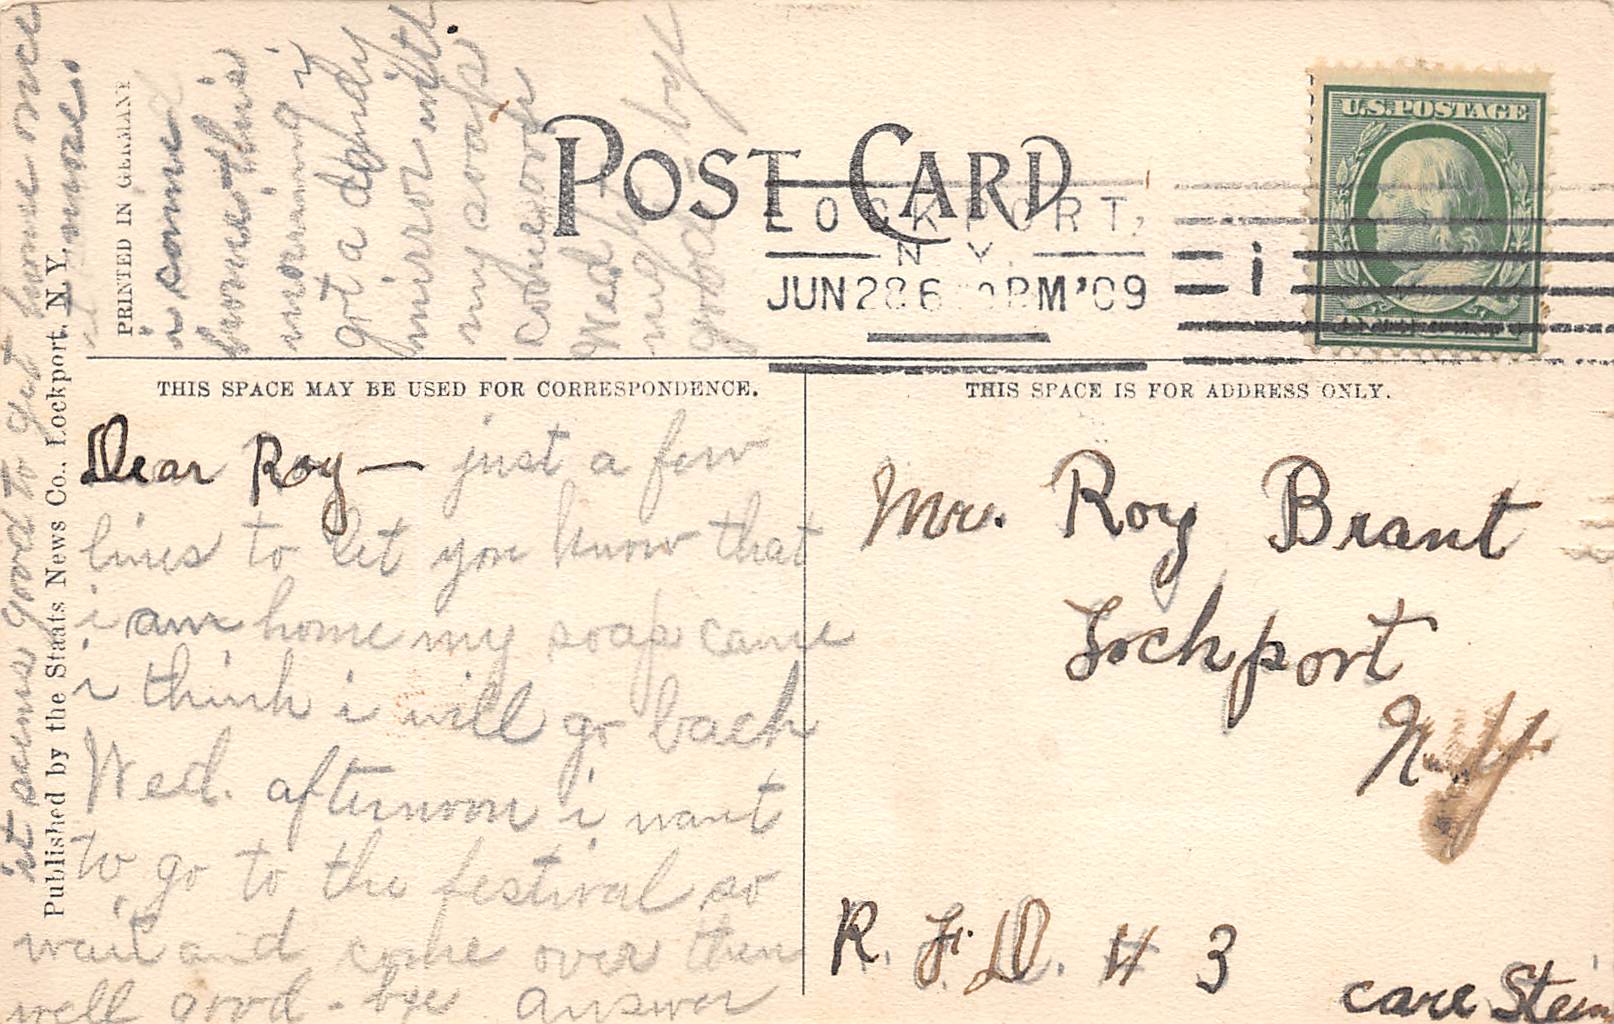 POST CARD
PRINTED IN GERMANY
Published by the Staats News Co., Lockport, N.Y.
U.S. POSTAGE
LOCKPORT,
N.Y.
JUN 28 6 PM '09
1
THIS SPACE MAY BE USED FOR CORRESPONDENCE.
THIS SPACE IS FOR ADDRESS ONLY.
Dear Roy — just a few
lines to let you know that
i am home my soap came
i think i will go back
Wed. afternoon i want
to go to the festival so
wait and come over then
well good-bye answer
it seems good to get home once
more.
i came
home this
morning i
got a dandy
mirror with
my soap
come over
Wed
night
good-bye
Mr. Roy Brant
Lockport
N.Y
R. F. D. # 3
care Stein